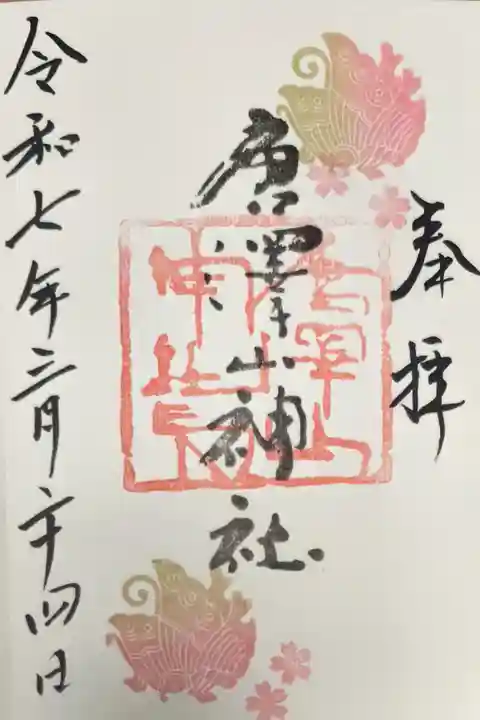 奉拝
唐澤山神社
令和七年三月二十四日